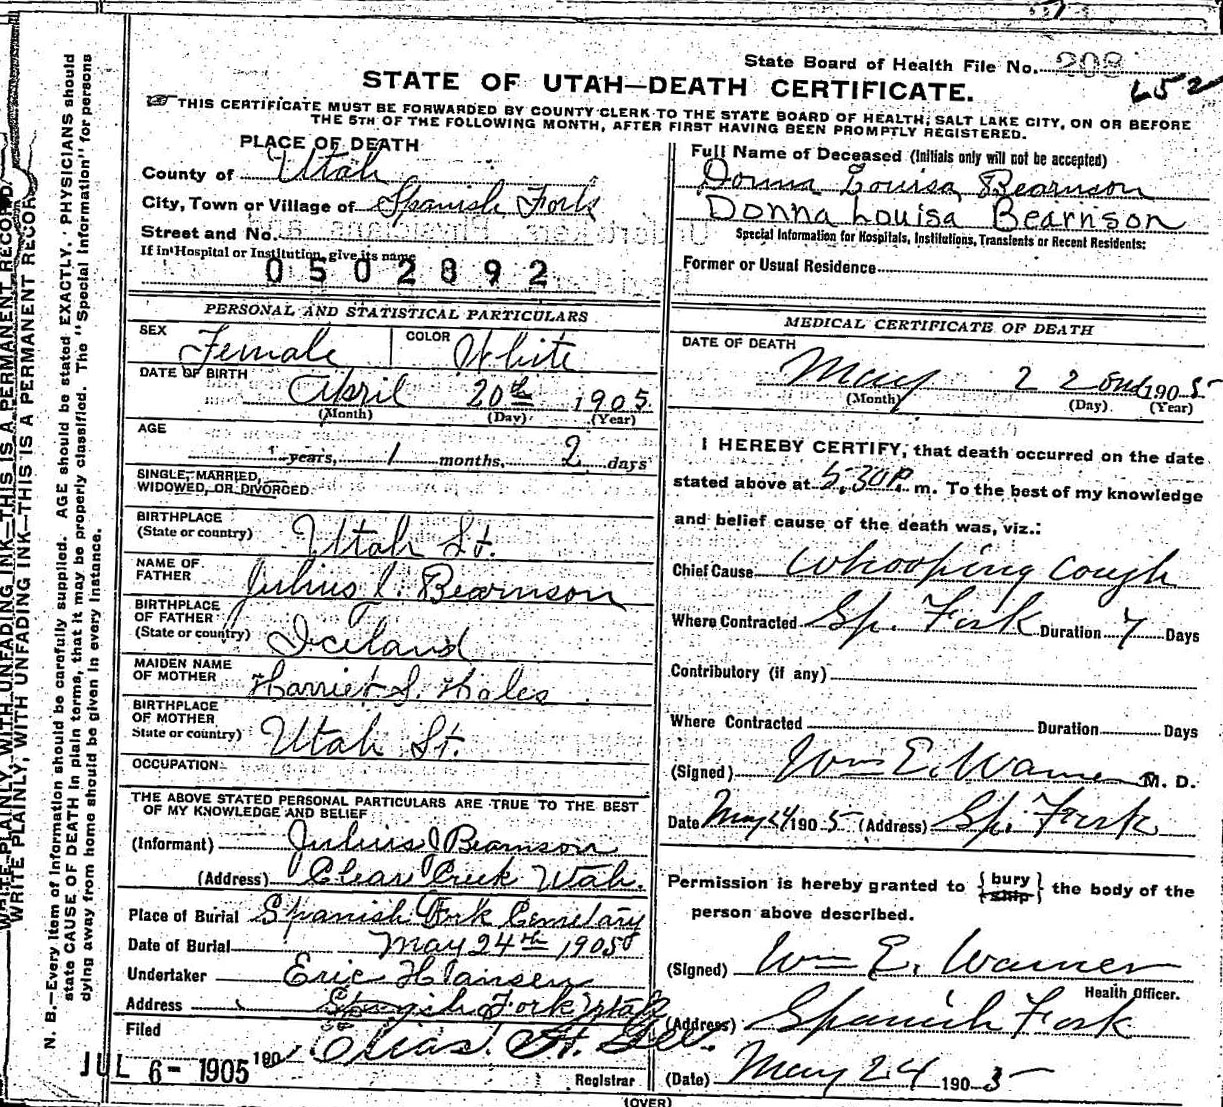 State Board of Health File No. 208
652
STATE OF UTAH—DEATH CERTIFICATE.
THIS CERTIFICATE MUST BE FORWARDED BY COUNTY CLERK TO THE STATE BOARD OF HEALTH, SALT LAKE CITY, ON OR BEFORE
THE 5TH OF THE FOLLOWING MONTH, AFTER FIRST HAVING BEEN PROMPTLY REGISTERED.
PLACE OF DEATH
County of Utah
City, Town or Village of Spanish Fork
Street and No.
If in Hospital or Institution, give its name
0502892
PERSONAL AND STATISTICAL PARTICULARS
SEX Female COLOR White
DATE OF BIRTH April 20th 1905
(Month) (Day) (Year)
AGE
years, 1 months, 2 days
SINGLE, MARRIED,
WIDOWED, OR DIVORCED
BIRTHPLACE
(State or country) Utah St.
NAME OF
FATHER Julius I. Bearnson
BIRTHPLACE
OF FATHER
(State or country) Iceland
MAIDEN NAME
OF MOTHER Harriet S. Hales
BIRTHPLACE
OF MOTHER
State or country) Utah St.
OCCUPATION
THE ABOVE STATED PERSONAL PARTICULARS ARE TRUE TO THE BEST
OF MY KNOWLEDGE AND BELIEF
(Informant) Julius I Bearnson
(Address) Clear Creek Utah.
Place of Burial Spanish Fork Cemetary
Date of Burial May 24th 1905
Undertaker Eric Hansen
Address Spanish Fork Utah
Filed
JUL 6 - 1905 190 Elias H. Gee.
Registrar
Full Name of Deceased (Initials only will not be accepted)
Donna Louisa Bearnson
Donna Louisa Bearnson
Special Information for Hospitals, Institutions, Transients or Recent Residents:
Former or Usual Residence
MEDICAL CERTIFICATE OF DEATH
DATE OF DEATH
May 22ond 1905
(Month) (Day) (Year)
I HEREBY CERTIFY, that death occurred on the date
stated above at 5.30 P. m. To the best of my knowledge
and belief cause of the death was, viz.:
Chief Cause Whooping Cough
Where Contracted Sp. Fork Duration 7 Days
Contributory (if any)
Where Contracted Duration Days
(Signed) Wm E. Warner M. D.
Date May 24 1905 (Address) Sp. Fork
Permission is hereby granted to {bury ship} the body of the
person above described.
(Signed) Wm E. Warner
Health Officer.
(Address) Spanish Fork
(Date) May 24 1905
(OVER)
WRITE PLAINLY, WITH UNFADING INK—THIS IS A PERMANENT RECORD.
WRITE PLAINLY, WITH UNFADING INK—THIS IS A PERMANENT RECORD
N. B.—Every item of information should be carefully supplied. AGE should be stated EXACTLY. PHYSICIANS should
state CAUSE OF DEATH in plain terms, that it may be properly classified. The "Special Information" for persons
dying away from home should be given in every instance.